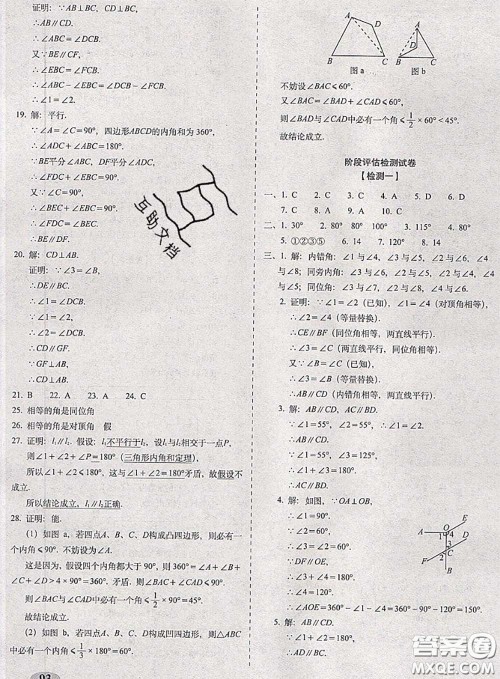 证明：∵AB⊥BC，CD⊥BC.
∴AB∥CD.
∴∠ABC=∠DCB.
又∵BE∥CF.
∴∠EBC=∠FCB.
∴∠ABC-∠EBC=∠DCB-∠FCB.
∴∠1=∠2.
19. 解：平行.
∵∠A=∠C=90°，四边形ABCD的内角和为360°，
∴∠ADC+∠ABC=180°.
∵BE平分∠ABC，DF平分∠ADC.
∴∠FDC+∠EBC=90°.
∵∠C=90°.
∴∠DFC+∠FDC=90°.
∴∠DFC=∠EBC.
∴BE∥DF.
20. 解：CD⊥AB.
证明：∵∠3=∠B，
∴DE∥BC.
∴∠1=∠DCB.
∵∠1=∠2.
∴∠2=∠DCB.
∴CD∥GF.
∵GF⊥AB.
∴CD⊥AB.
21. B 22. A 23. A 24. C
25. 相等的角是同位角
26. 相等的角是对顶角 假
27. 证明：l₁∥l₂. 假设：l₁不平行于l₂，设l₁与l₂相交于一点P，
则∠1+∠2+∠P=180°（三角形内角和定理），
所以∠1+∠2<180°，这与∠1+∠2=180°矛盾，故假设不
成立.
所以结论成立，l₁∥l₂正确.
28. 证明：能.
（1）如图a，若四点A、B、C、D构成凸四边形，则必有一
个内角⩽90°. 不妨设为∠A.
这是为何，假设四个内角都大于90°，则∠A+∠B+∠C
+∠D>4×90°=360°，矛盾！所以∠A⩽90°.
则∠BAC与∠CAD中必有一个角⩽1/2×90°=45°.
故结论成立.
（2）如图b，若四点A、B、C、D构成凹四边形，则△ABC
中必有一个内角⩽1/3×180°=60°.
93
A
D
B
C
图a
A
D
B
C
图b
不妨设∠BAC⩽60°.
又∵∠BAC=∠BAD+∠CAD⩽60°.
∴∠BAD与∠CAD中必有一个角⩽1/2×60°<45°.
故结论成立.
阶段评估检测试卷
【检测一】
一、1. C 2. C 3. C 4. A 5. D 6. C
二、1. 108° 2. 35° 3. 80° 80° 100° 4. 115°
5. ①②③⑤ 6. 14° 7. 120°
三、1. 解：内错角：∠1与∠4，∠2与∠5，∠3与∠6，∠6与
∠8；同旁内角：∠3与∠6，∠2与∠4，∠2与∠6，∠4与
∠6，∠5与∠3；同位角：∠3与∠7，∠2与∠8，∠4与
∠6.
2. 证明：∵∠1=∠2（已知），∠1=∠4（对顶角相等），
∴∠2=∠4（等量替换）.
∴CE∥BF（同位角相等，两直线平行）.
∴∠3=∠C（两直线平行，同位角相等）.
又∵∠B=∠C（已知）.
∴∠3=∠B（等量替换）.
∴AB∥CD（内错角相等，两直线平行）.
3. 解：∵∠1=55°，∴∠D=125°，
∵∠1=∠2，∴∠2=55°，
∴∠2+∠D=180°.
∴AD∥BC.
又∵∠1=55°，∴∠ABC=55°.
∴∠ABC+∠BCD=180°.
∴AB∥CD.
4. 解：如图，∵OA⊥OB，
∴∠1=90°.
∵∠2=60°.
∴∠3=∠2=60°.
∵DF∥OE.
∴∠3+∠4=180°.
∴∠4=120°.
∴∠AOE=360°-∠1-∠4=360°-90°-120°=150°.
A
O
E
1
4
3
F
2
C
D
B
5. 解：∵AD⊥BC.
∴∠ADB=90°.
互助文档
答案圈
MXQE.COM